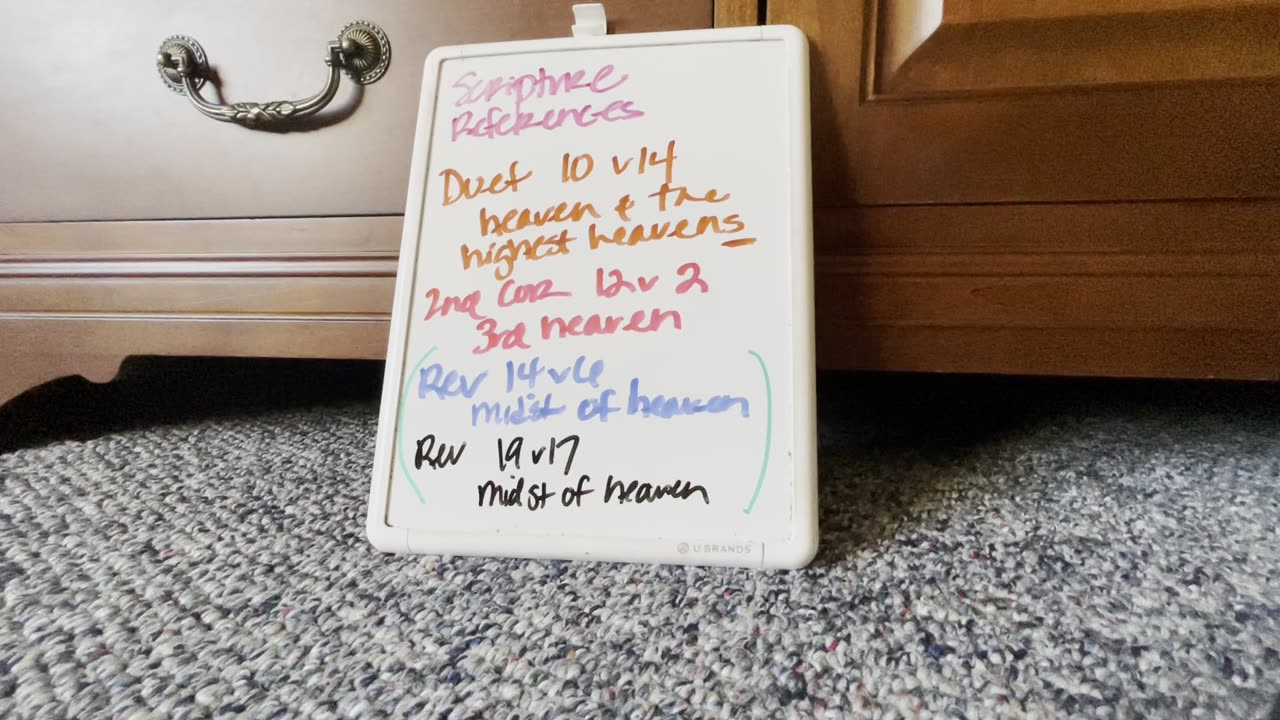 Scripture
References
Duet 10 v14
heaven & the
highest heavens
2nd Cor 12 v 2
3rd heaven
Rev 14 v6
midst of heaven
Rev 19 v17
midst of heaven
U BRANDS